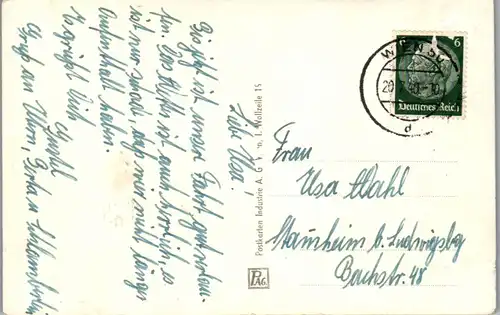 Liebe Usa!
Bis jetzt ist unsere Fahrt gut verlau-
fen. Das ist auch herrlich, so
ist nur schad, daß wir nicht länger
Aufenthalt haben.
Es grüßt Dich
Gruß an Berta u.
Postkarten Industrie A. G. Wien, I. Wollzeile 15
PAG
WIEN
20
d
6
Deutsches Reich
Frau
Usa Wahl
Stammheim b. Ludwigsbg
Bachstr. 48